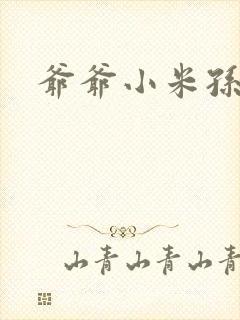 爷爷小米孫
山青山青山青